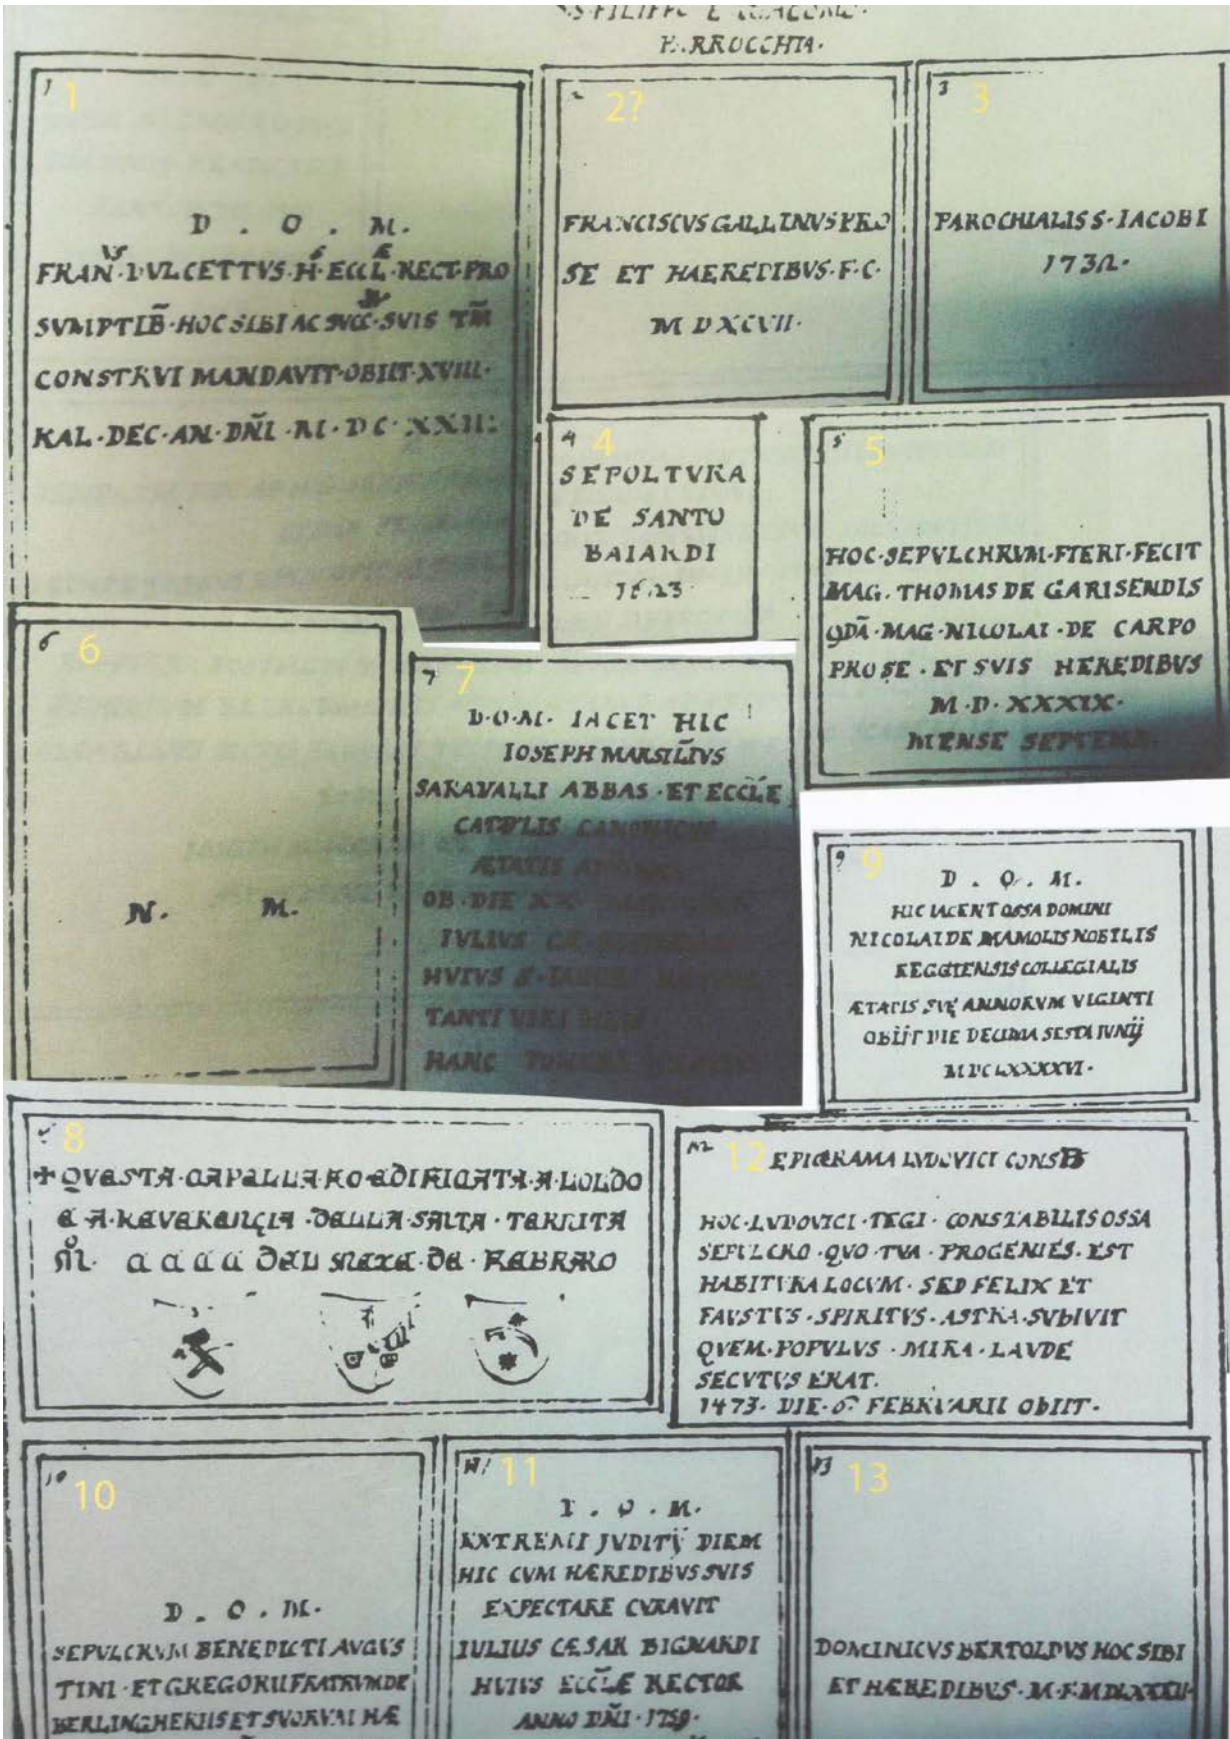 S.S. FILIPPO E GIACOMO.
PARROCCHIA.
1
1
D . O . M.
FRAN̄VS · DVLCETTVS · H · ECCLÆ · RECT · PRO
SVMPTIB̄ · HOC SIBI AC SVCC · SVIS TM̄
CONSTRVI MANDAVIT · OBIIT · XVIII ·
KAL · DEC · AN · DÑI · M · DC · XXII
2
2?
FRANCISCVS GALLINVS PRO
SE ET HAEREDIBVS · F · C ·
M D XCVII ·
3
3
PAROCHIALIS S · IACOBI
173
4
4
SEPOLTVRA
DE SANTO
BAIARDI
1623 ·
5
5
HOC · SEPVLCHRVM · FIERI · FECIT
MAG · THOMAS DE GARISENDIS
QDĀ · MAG · NICOLAI · DE CARPO
PRO SE · ET SVIS HEREDIBVS
M · D · XXXIX ·
MENSE SEPTEMB.
6
6
N. M.
7
7
D · O · M · IACET HIC
IOSEPH MARSILĪVS
SARAVALLI ABBAS · ET ECCL̄E
CATR̄LIS CANONICUS
ÆTATIS
OB · DIE XX
IVLIVS CÆ
HVIVS S · IACOBI
TANTI VIRI MEM
HANC
9
9
D . O . M.
HIC IACENT OSSA DOMINI
NICOLAI DE MAMOLIS NOBILIS
REGGIENSIS COLLEGIALIS
ÆTATIS SVĘ ANNORVM VIGINTI
OBIIT DIE DECIMA SESTA IVNIJ
MDCLXXXXVI ·
8
+ QVESTA · CAPELLA · FO · EDIFICATA · A · LOLDO
E · A · REVERENÇIA · DELLA · SATA · TERNITA
M̊ · CCCC DEL MEXE · DE · FEBRARO
12
12
EPIGRAMA LVDOVICI CONSB
HOC · LVDOVICI · TEGI · CONSTABILIS OSSA
SEPULCRO · QVO · TVA · PROGENIES · EST
HABITVRA LOCVM · SED FELIX ET
FAVSTVS · SPIRITVS · ASTRA · SVBIVIT
QVEM · POPVLVS · MIRA · LAVDE
SECVTVS ERAT.
1473 · DIE · 6 FEBRVARII OBIIT ·
10
10
D . O . M ·
SEPVLCRVM BENEDICTI AVGVS
TINI · ET GREGORII FRATRVM DE
BERLINGHERIIS ET SVORVM HÆ
11
11
D . O . M ·
EXTREMI JVDITIJ DIEM
HIC CVM HÆREDIBVS SVIS
EXPECTARE CVRAVIT
IULIUS CÆSAR BIGNARDI
HVIVS ECCL̄Æ RECTOR
ANNO DÑI · 1759 ·
13
13
DOMINICVS BERTOLDVS HOC SIBI
ET HÆREDIBVS · M · F · MDLXXXII ·